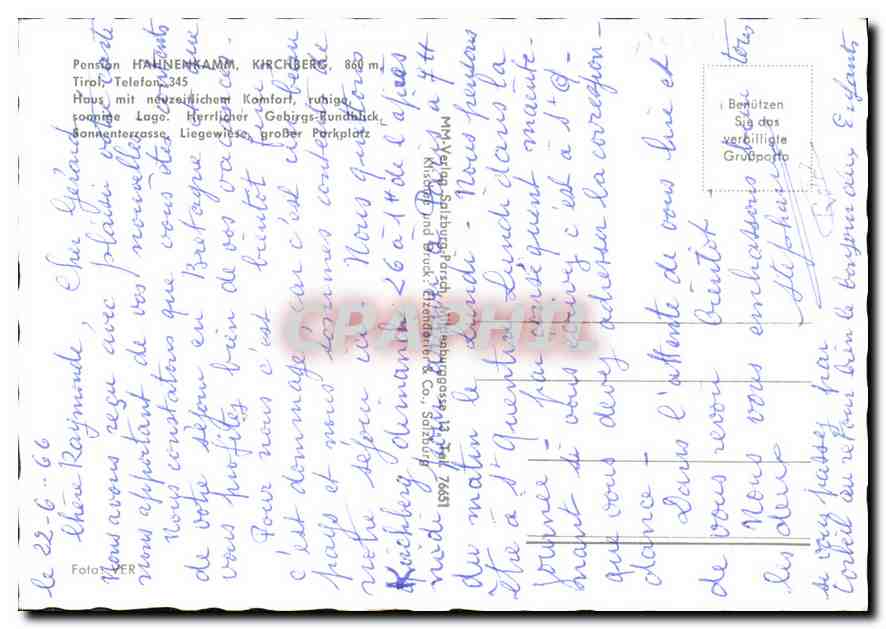 Pension HAHNENKAMM, KIRCHBERG, 860 m,
Tirol, Telefon 345
Haus mit neuzeitlichem Komfort, ruhige,
sonnige Lage. Herrlicher Gebirgs-Rundblick,
Sonnenterrasse, Liegewiese, großer Parkplatz
Benützen
Sie das
verbilligte
Grußporto
MM-Verlag Salzburg-Parsch, 13, Tel. 76651
Klischees und Druck: & Co., Salzburg
Foto: VER
CPARHIL
le 22-6-66
Chère Raymonde, Cher Gérard
Nous avons reçu avec plaisir votre carte
nous apportant de vos nouvelles
Nous constatons que vous êtes contents
de votre séjour en Bretagne et que
vous profitez bien de vos vacances.
Pour nous c'est bientôt fini
c'est dommage, car c'est un beau
pays et nous sommes contents de
notre séjour ici. Nous quittons
Kirchberg dimanche 26 à 14H de l'après
midi pour arriver à Paris à 7H
du matin le lundi - Nous pensons
être à St Quentin Lundi dans la
journée - Par conséquent mainte-
nant si vous écrivez c'est à St Q-
que vous devez adresser la correspon-
dance -
Dans l'attente de vous lire et
de vous revoir bientôt
Nous vous embrassons bien tous
les deux
Stéphane
si vous passez par
Corbeil au retour bien le bonjour aux Enfants